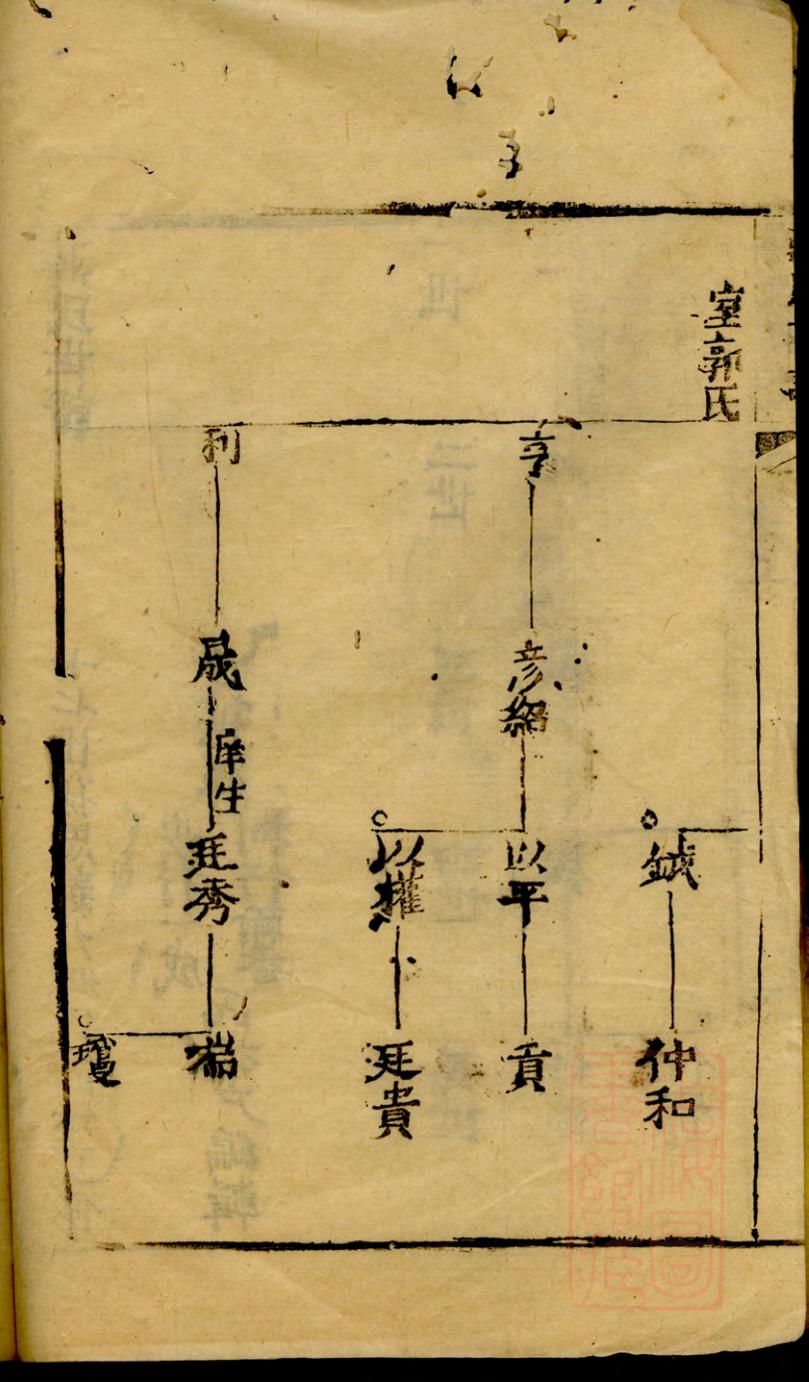 室郭氏
鉞
仲和
亨
彥紹
以平
貢
以權
廷貴
利
晟
庠生
廷秀
瑞